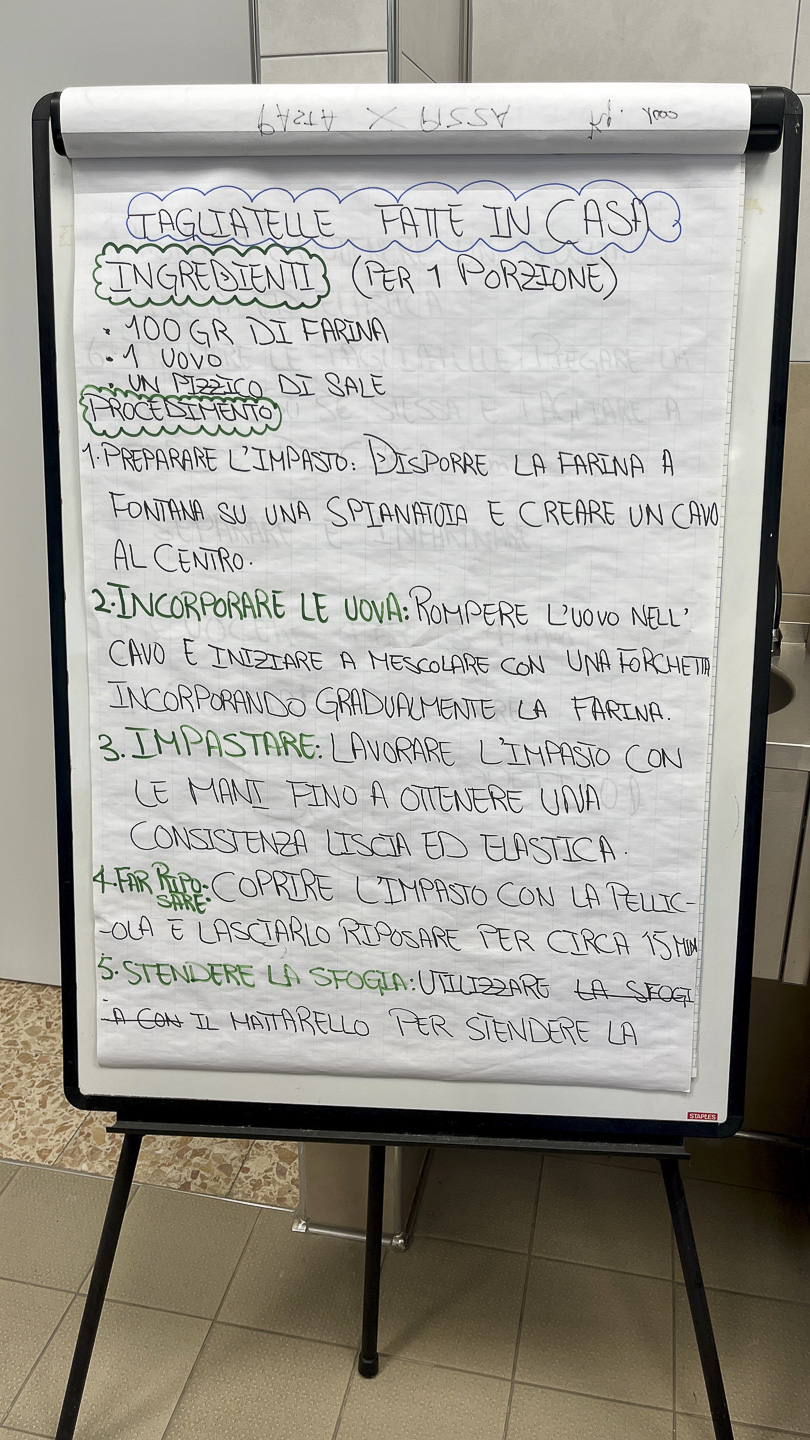 TAGLIATELLE FATTE IN CASA
INGREDIENTI (PER 1 PORZIONE)
• 100 GR DI FARINA
• 1 UOVO
• UN PIZZICO DI SALE
PROCEDIMENTO
1. PREPARARE L'IMPASTO: DISPORRE LA FARINA A
FONTANA SU UNA SPIANATOIA E CREARE UN CAVO
AL CENTRO.
2. INCORPORARE LE UOVA: ROMPERE L'UOVO NELL'
CAVO E INIZIARE A MESCOLARE CON UNA FORCHETTA
INCORPORANDO GRADUALMENTE LA FARINA.
3. IMPASTARE: LAVORARE L'IMPASTO CON
LE MANI FINO A OTTENERE UNA
CONSISTENZA LISCIA ED ELASTICA.
4. FAR RIPO-
SARE: COPRIRE L'IMPASTO CON LA PELLIC-
-OLA E LASCIARLO RIPOSARE PER CIRCA 15 MIN
5. STENDERE LA SFOGIA: UTILIZZARE LA SFOGI
A CON IL MATTARELLO PER STENDERE LA
STAPLES